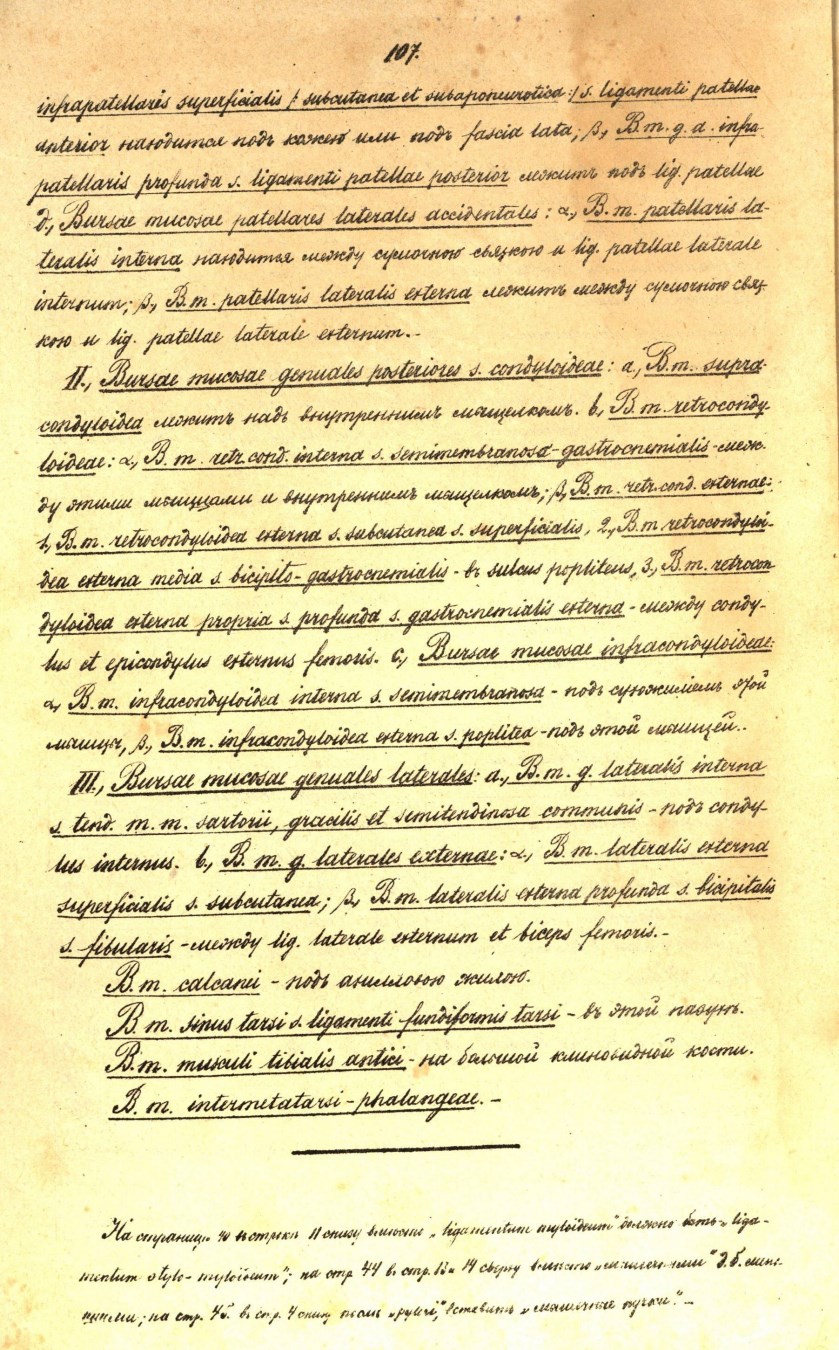 107.
infrapatellaris superficialis /: subcutanea et subaponeurotica :/ s. ligamenti patellae
anterior находится подъ кожею или подъ fascia lata; β, B. m. g. a. infra-
patellaris profunda s. ligamenti patellae posterior лежитъ подъ lig. patellae
d., Bursae mucosae patellares laterales accidentales: α, B. m. patellaris la-
teralis interna находится между сумочною связкою и lig. patellae laterale
internum; β, B. m. patellaris lateralis externa лежитъ между сумочною свяж-
кою и lig. patellae laterale externum.-
II., Bursae mucosae genuales posteriores s. condyloideae: a., B. m. supra-
condyloidea лежитъ надъ внутреннимъ мыщелкомъ. b., B. m. retrocondy-
loideae: α, B. m. retr. cond. interna s. semimembranosa-gastrocnemialis -меж-
ду этими мышцами и внутреннимъ мыщелкомъ; β, B. m. retr. cond. externae:
1, B. m. retrocondyloidea externa s. subcutanea s. superficialis, 2, B. m. retrocondyloi-
dea externa media s. bicipits-gastrocnemialis - въ sulcus popliteus, 3, B. m. retrocon
dyloidea externa propria s. profunda s. gastrocnemialis externa - между condy-
lus et epicondylus externus femoris. c, Bursae mucosae infracondyloideae:
α, B. m. infracondyloidea interna s. semimembranosa - подъ сухожиліемъ этой
мышцы, β, B. m. infracondyloidea externa s. poplitea - подъ этой мышцей..
III., Bursae mucosae genuales laterales: a., B. m. g. lateralis interna
s. tend. m. m. sartorii, gracilis et semitendinosa communis - подъ condy-
lus internus. b., B. m. g. laterales externae: α, B. m. lateralis externa
superficialis s. subcutanea; β, B. m. lateralis externa profunda s. bicipitalis
s. fibularis - между lig. laterale externum et biceps femoris.-
B. m. calcanei - подъ ахилловою жилою.
B. m. sinus tarsi s. ligamenti fundiformis tarsi - въ этой пазухѣ.
B. m. musculi tibialis antici - на большой клиновидной кости.
B. m. intermetatarsi-phalangeae. -
На страницѣ 40 въ строкѣ 11 снизу вмѣсто „ligamentum myloideum" должно быть „liga-
mentum stylo-myloideum"; на стр 44 въ стр. 13 и 14 сверху вмѣсто д. б.
на стр. 45. въ стр. 4 снизу послѣ вставить „мышечные пучки". -